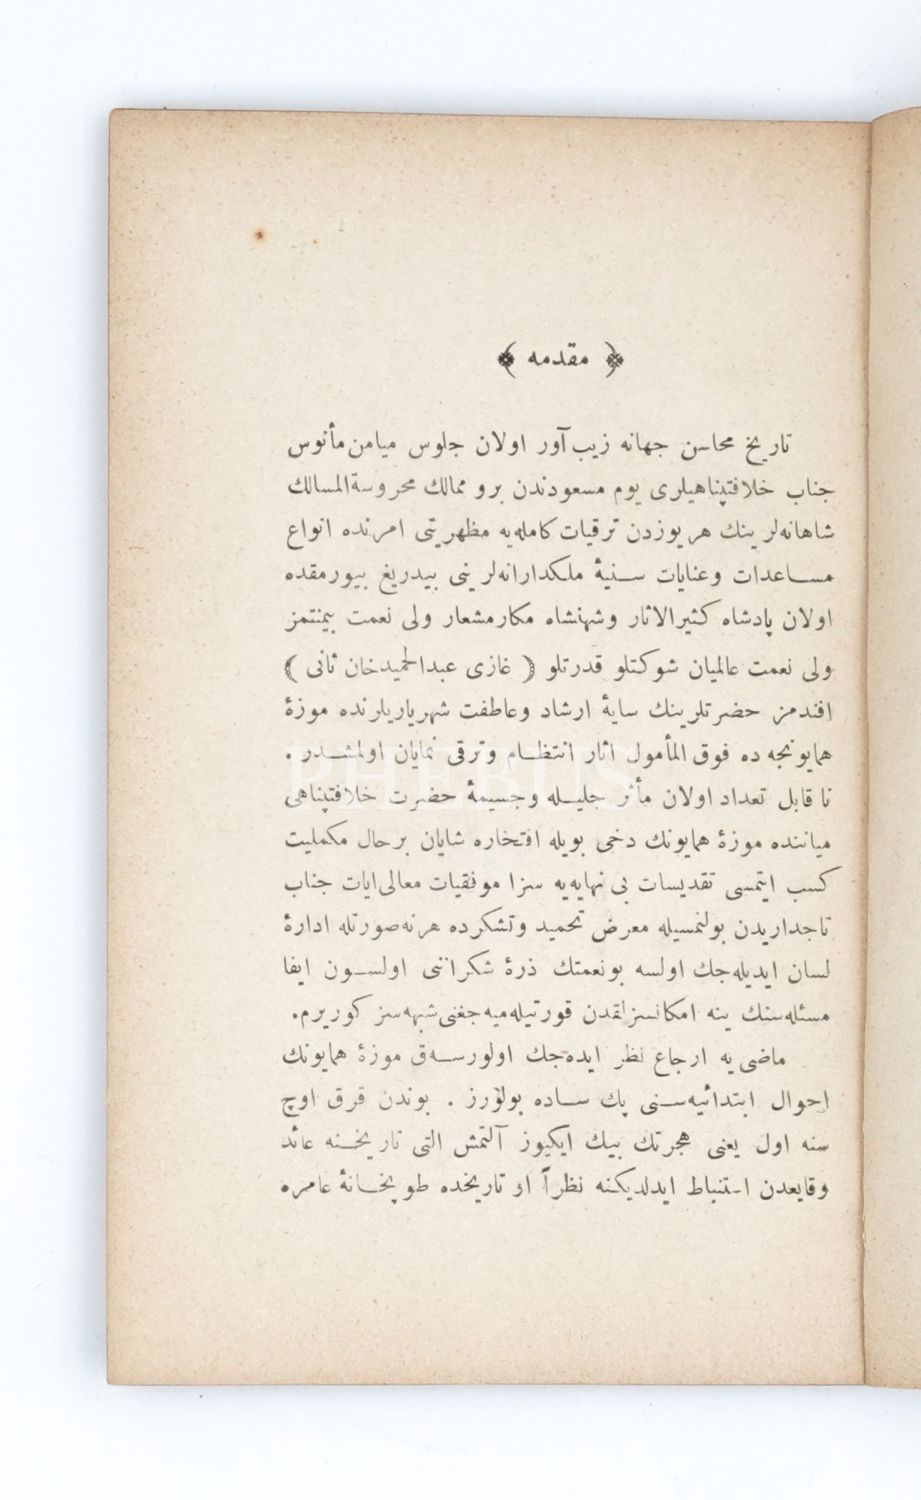 ﴿ مقدمه ﴾
تاریخ محاسن جهانه زیب‌آور اولان جلوس میامن‌مأنوس
جناب خلافتپناهیلری یوم مسعودندن برو ممالك محروسةالمسالك
شاهانه‌لرینك هر یوزدن ترقیات کامله‌یه مظهریتی امرنده انواع
مساعدات وعنایات سنیۀ ملکدارانه‌لرینی بیدریغ بیورمقده
اولان پادشاه کثیرالاثار وشهنشاه مکارمشعار ولی نعمت بیمنتمز
ولی نعمت عالمیان شوکتلو قدرتلو ( غازی عبدالحمیدخان ثانی )
افندمز حضرتلرینك سایۀ ارشاد وعاطفت شهریاریلرنده موزۀ
همایونجه ده فوق المأمول اثار انتظام وترقی نمایان اولمشدر .
نا قابل تعداد اولان مأثر جلیله وجسیمۀ حضرت خلافتپناهی
میاننده موزۀ همایونك دخی بویله افتخاره شایان برحال مکملیت
کسب ایتمسی تقدیسات بی نهایه‌یه سزا موفقیات معالی‌ایات جناب
تاجداریدن بولنمسیله معرض تحمید وتشکرده هرنه‌صورتله ادارۀ
لسان ایدیله‌جك اولسه بونعمتك ذرۀ شکراننی اولسون ایفا
مسئله‌سنك ینه امکانسزلقدن قورتیله‌میه‌جغنی‌شبهه‌سز کوریرم.
ماضی یه ارجاع نظر ایده‌جك اولورسه‌ق موزۀ همایونك
احوال ابتدائیه‌سنی پك ساده بولورز . بوندن قرق اوچ
سنه اول یعنی هجرتك بیك ایکیوز آلتمش التی تاریخنه عائد
وقایعدن استنباط ایدلدیکنه نظراً او تاریخده طوپخانۀ عامره
PHEBUS